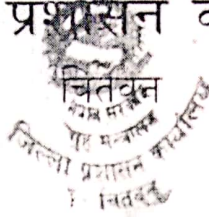 प्रशासन
चितवन
नेपाल सरकार
गृह मन्त्रालय
जिल्ला प्रशासन कार्यालय
चितवन